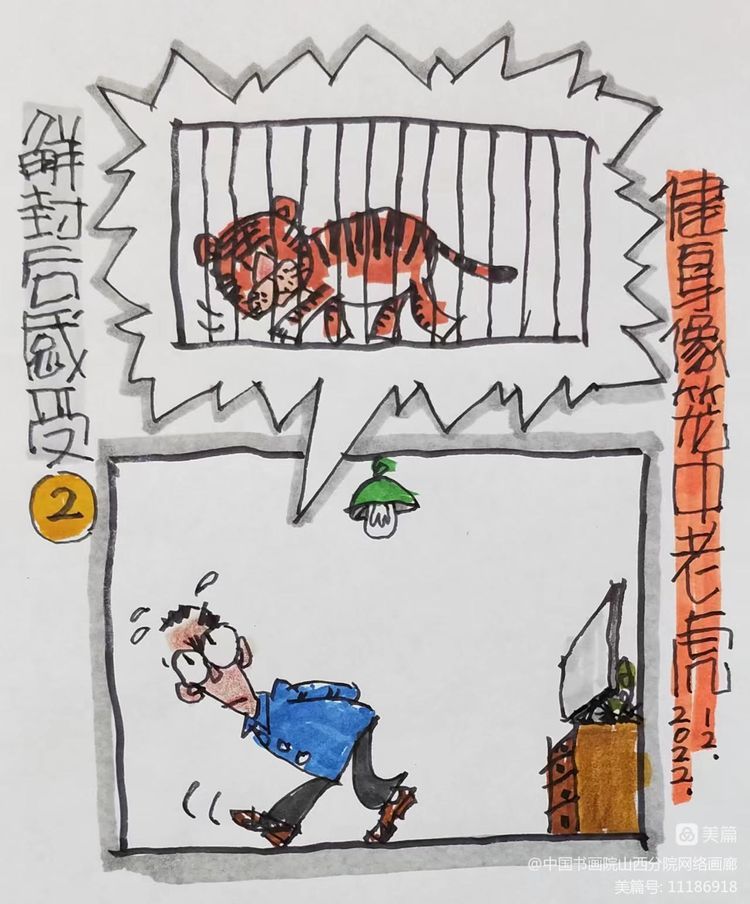 解封后感受
2
健身像笼中老虎
2022.12.
美篇
@中国书画院山西分院网络画廊
美篇号: 11186918